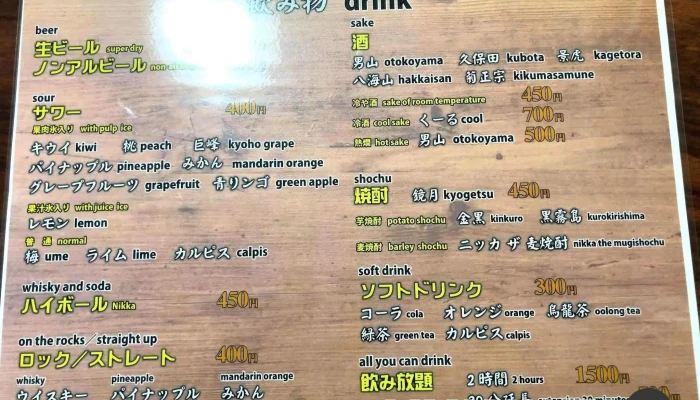 飲み物 drink
beer
生ビール super dry
ノンアルビール
sour
サワー 400円
果肉氷入り with pulp ice
キウイ kiwi 桃 peach 巨峰 kyoho grape
パイナップル pineapple みかん mandarin orange
グレープフルーツ grapefruit 青リンゴ green apple
果汁氷入り with juice ice
レモン lemon
普通 normal
梅 ume ライム lime カルピス calpis
whisky and soda
ハイボール Nikka 450円
on the rocks／straight up
ロック／ストレート 400円
whisky pineapple mandarin orange
ウイスキー パイナップル みかん
sake
酒
男山 otokoyama 久保田 kubota 景虎 kagetora
八海山 hakkaisan 菊正宗 kikumasamune
冷や酒 sake of room temperature 450円
冷酒 cool sake くーる cool 700円
熱燗 hot sake 男山 otokoyama 500円
shochu
焼酎 鏡月 kyogetsu 450円
芋焼酎 potato shochu 金黒 kinkuro 黒霧島 kurokirishima
麦焼酎 barley shochu ニッカ ザ 麦焼酎 nikka the mugishochu
soft drink
ソフトドリンク 300円
コーラ cola オレンジ orange 烏龍茶 oolong tea
緑茶 green tea カルピス calpis
all you can drink
飲み放題 2時間 2 hours 1500円